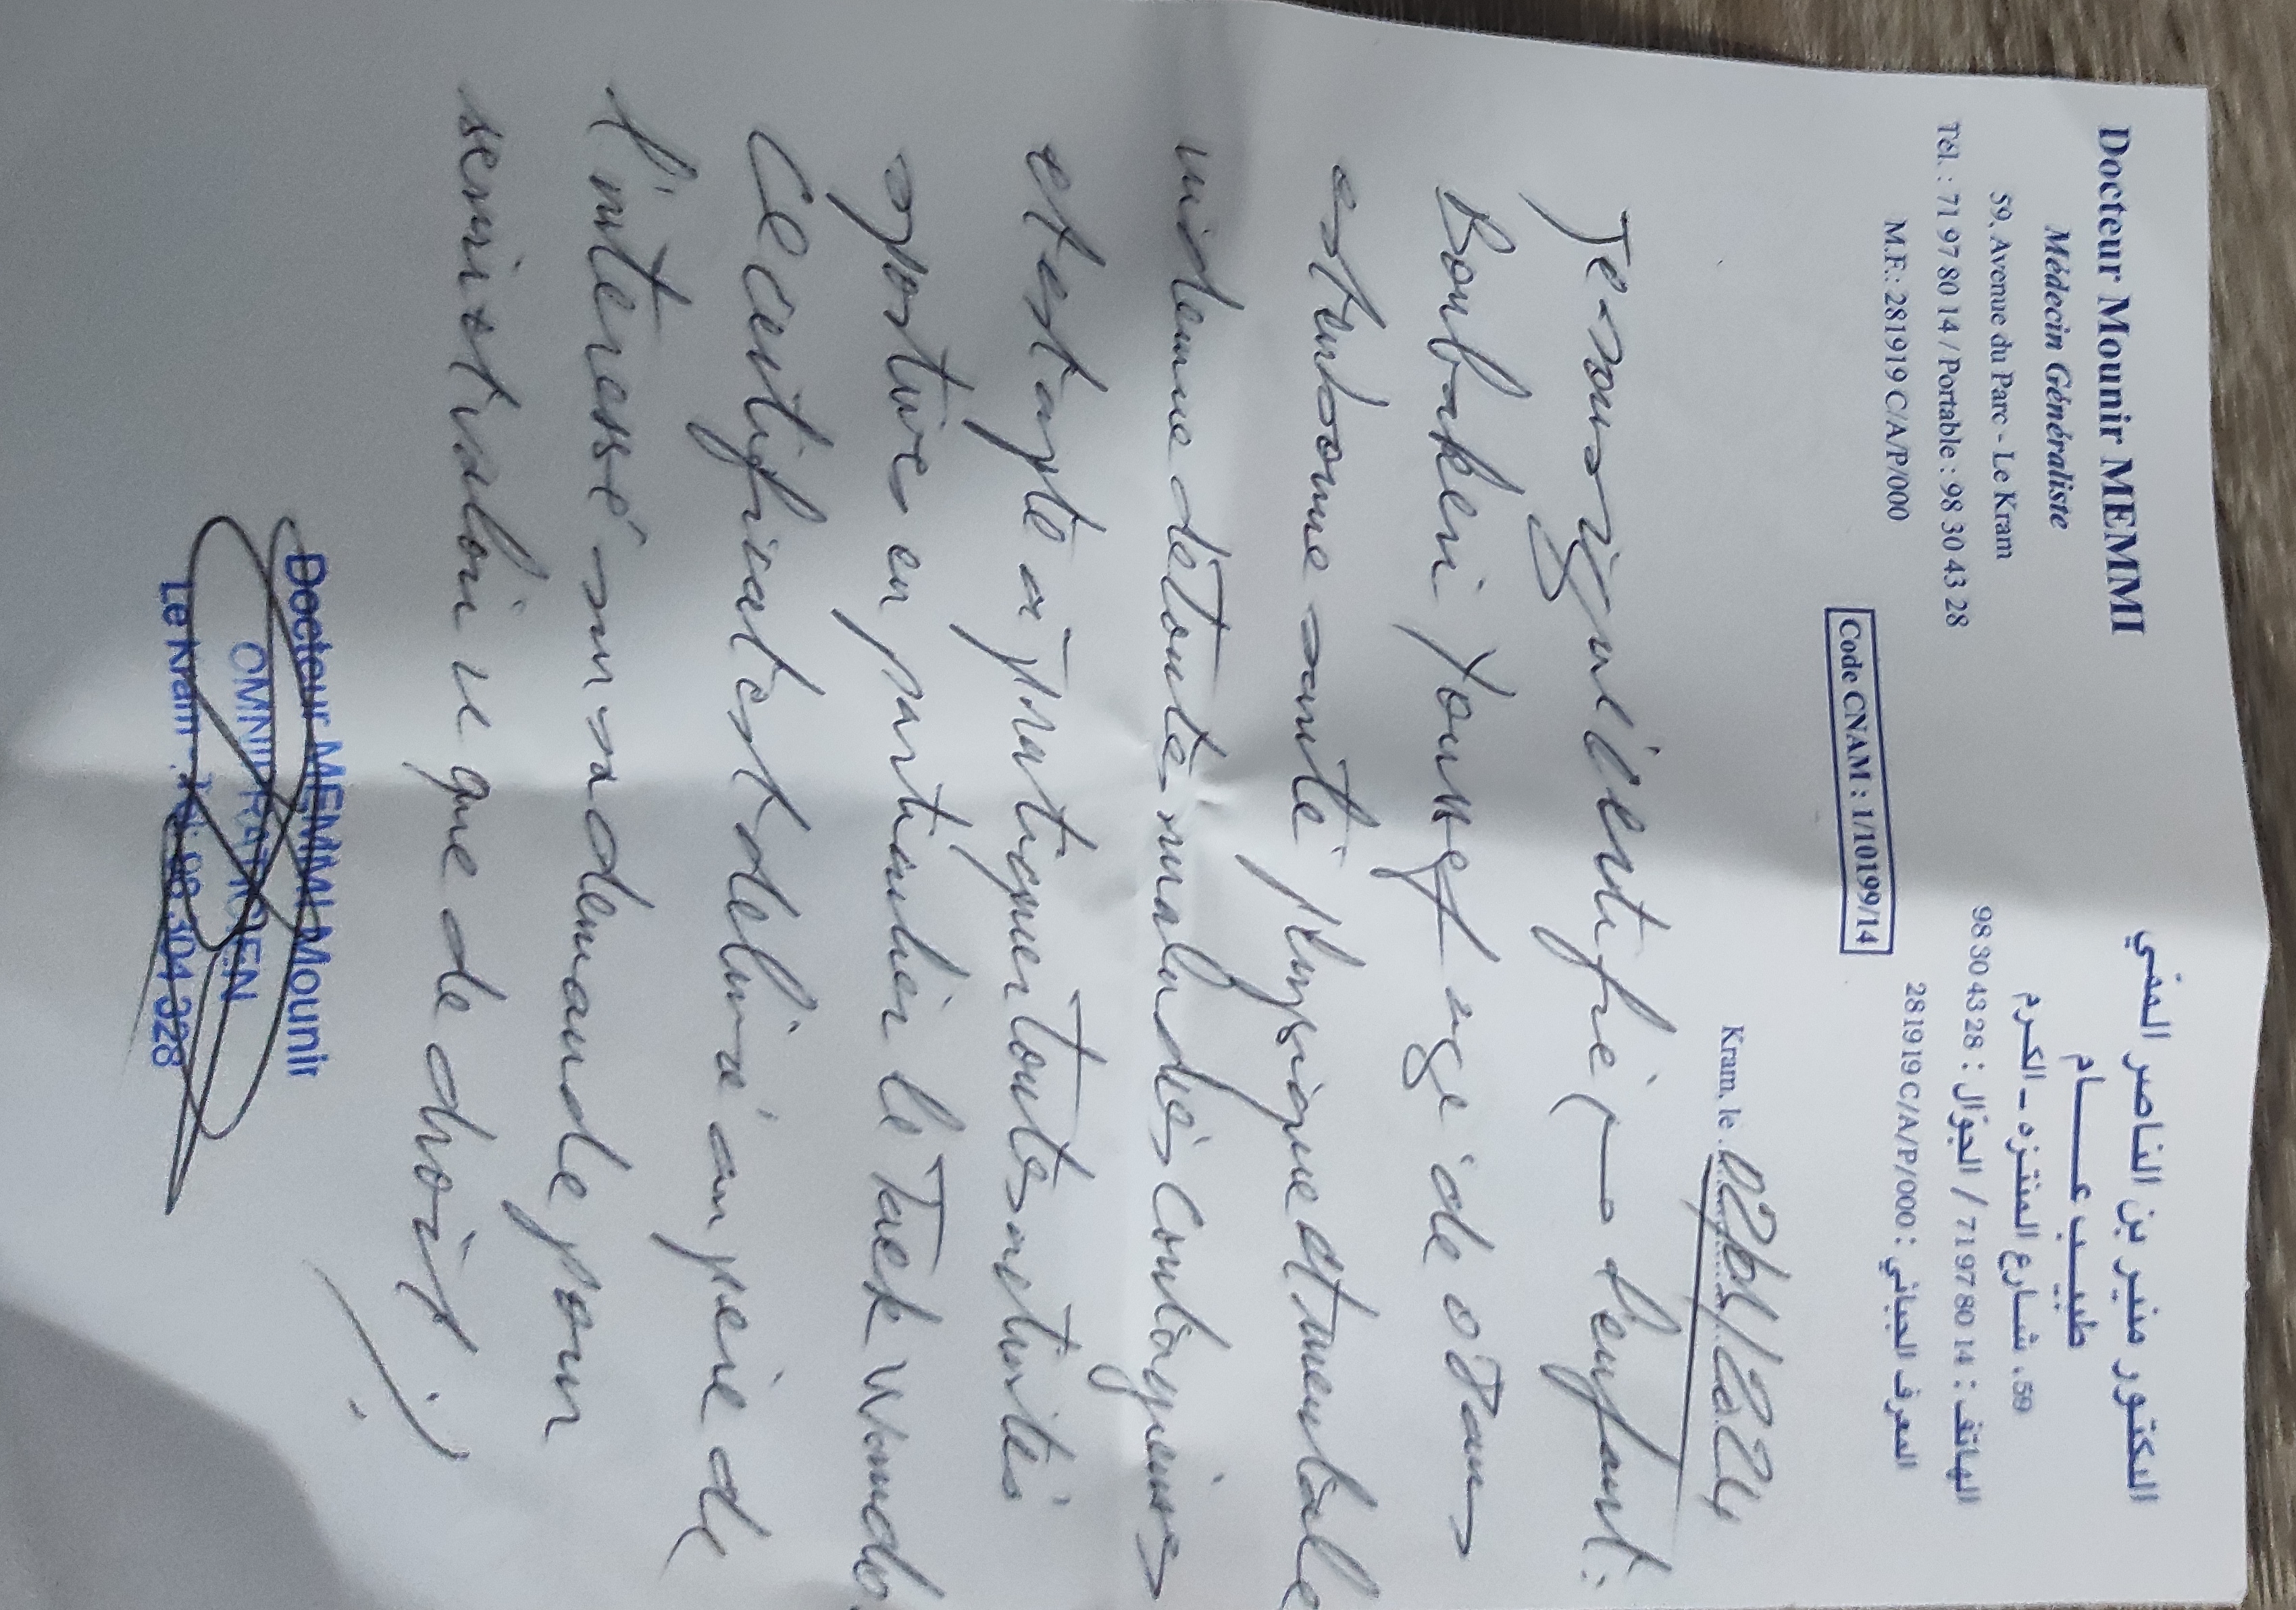 Docteur Mounir MEMMI
Médecin Généraliste
59, Avenue du Parc - Le Kram
Tél. : 71 97 80 14 / Portable : 98 30 43 28
M.F.: 281919 C/A/P/000
الدكتور منير بن الناصر الممي
طبيب عــــام
59، شارع المنتزه - الكرم
الهاتف : 71 97 80 14 / الجوّال : 98 30 43 28
المعرف الجبائي : 281919 C/A/P/000
Code CNAM : 1/10199/14
Kram, le 02/01/2024
Je soussigné certifie que l'enfant :
Boubakeri Youssef agé de 08 ans
est en bonne santé physique et mentale
indemne de toute maladies contagieuses
et est apte à pratiquer toutes activités
sportives en particulier le Taek Wondo
Ce certificat est délivré au père de
l'interessé sur sa demande pour
servir et valoir ce que de droit
Docteur MEMMI Mounir
OMNIPRATICIEN
Le Kram - Tél: 98 304 328